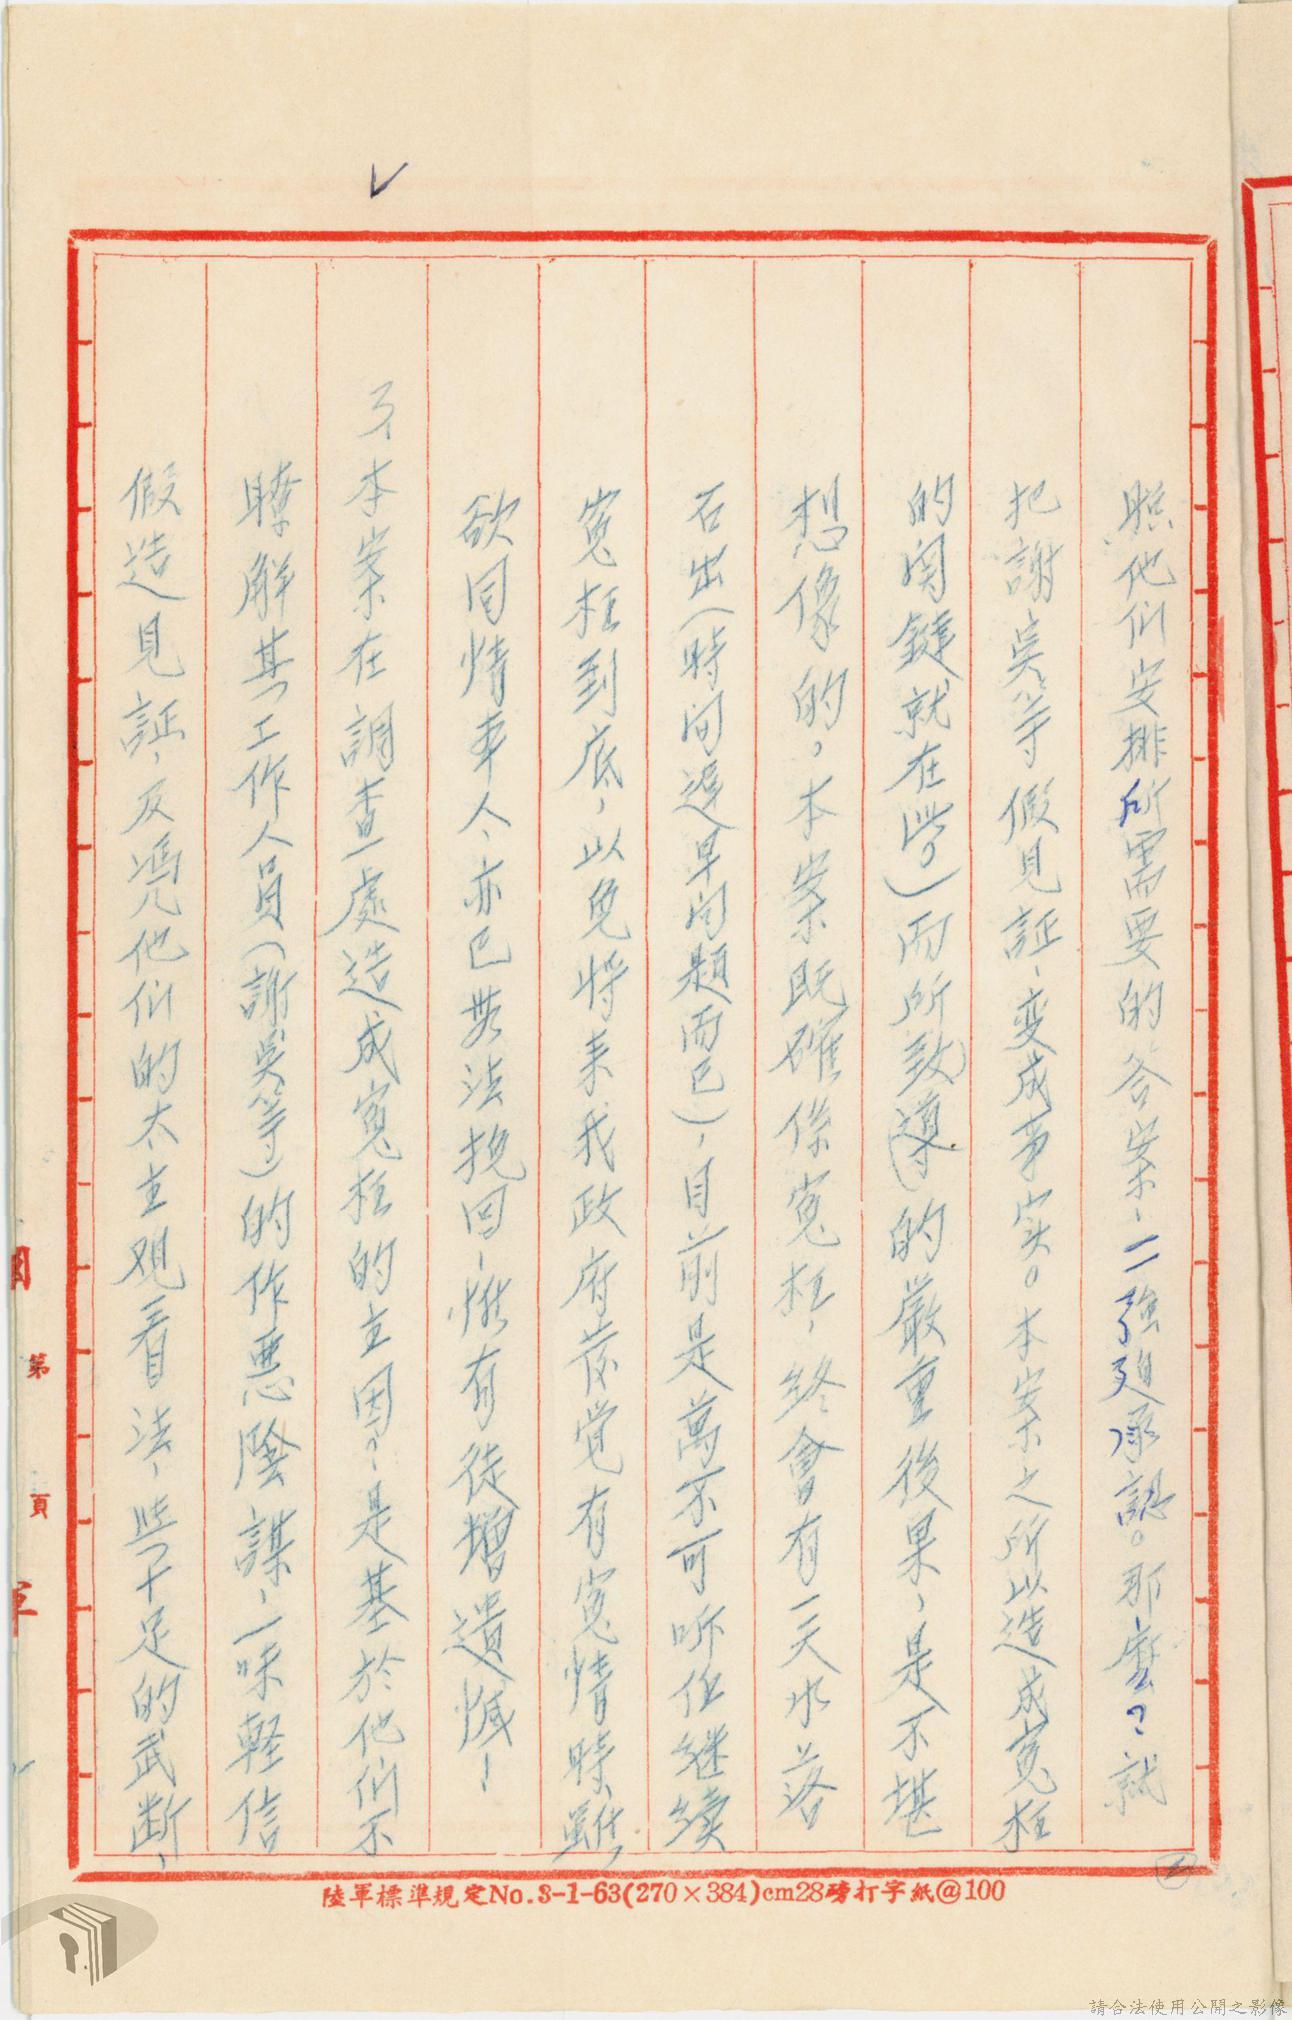 照他们安排所需要的答案、二強廹承認。那麼?就
把謝、吳等假見証、变成事实。本案之所以造成寃枉
的関鍵就在此。)而所致(導)的嚴重後果,是不堪
想像的。本案既確係寃枉,終會有一天水落
石出(時间遲早问題而已),目前是萬不可听任継續
寃枉到底,以免将来我政府發覚有寃情時,雖
欲同情本人、亦已無法挽回,惟有徒增遺憾!
3、本案在調查處造成寃枉的主因?是基於他们不
瞭解其工作人員(謝吳等)的作惡陰謀,一味軽信
假造見証,及憑他们的太主观看法,些十足的武断,
陸軍標準規定No.3-1-63(270×384)cm28磅打字紙@100
第 頁
請合法使用公開之影像